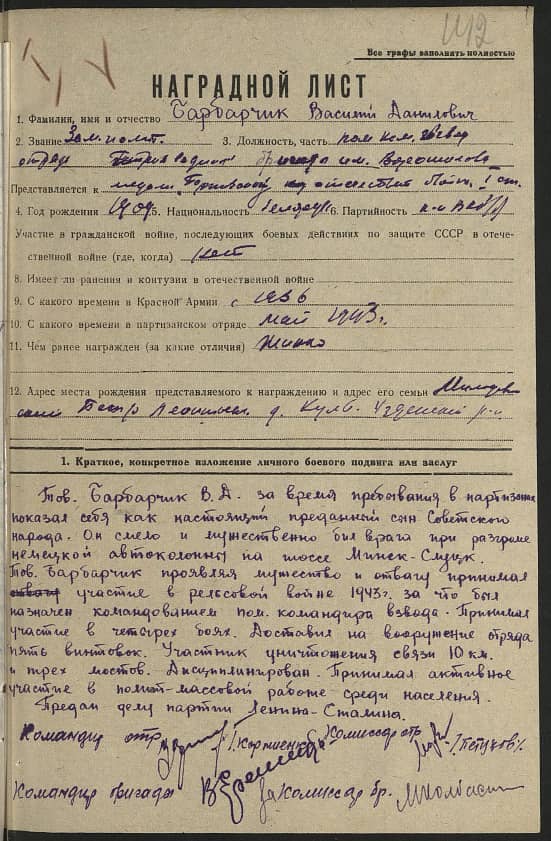 Все графы заполнять полностью
НАГРАДНОЙ ЛИСТ
1. Фамилия, имя и отчество Барбарчик Василий Данилович
2. Звание Зам. полит. 3. Должность, часть пом. ком. взвода
отряд бригада им. Ворошилова
Представляется к медали Партизану отечествен. войны I ст.
4. Год рождения 1909 5. Национальность белорус 6. Партийность к-м ВКП(б)
Участие в гражданской войне, последующих боевых действиях по защите СССР в отече-
ственной войне (где, когда)
8. Имеет ли ранения и контузии в отечественной войне
9. С какого времени в Красной Армии с 1936
10. С какого времени в партизанском отряде май 1943 г.
11. Чем ранее награжден (за какие отличия)
12. Адрес места рождения представляемого к награждению и адрес его семьи
д. Узденский р-н
1. Краткое, конкретное изложение личного боевого подвига или заслуг
Тов. Барбарчик В. Д. за время пребывания в партизанке
показал себя как настоящий преданный сын Советского
народа. Он смело и мужественно бил врага при разгроме
немецкой автоколонны на шоссе Минск-Слуцк.
Тов. Барбарчик проявляя мужество и отвагу принимал
участие в рельсовой войне 1943 г. за что был
назначен командованием пом. командира взвода. Принимал
участие в четырех боях. Доставил на вооружение отряда
пять винтовок. Участник уничтожения связи 10 км.
и трех мостов. Дисциплинирован. Принимал активное
участие в полит-массовой работе среди населения.
Предан делу партии Ленина-Сталина.
Командир отр. Комиссар отр. /Петухов/
Командир бригады Комиссар бр.